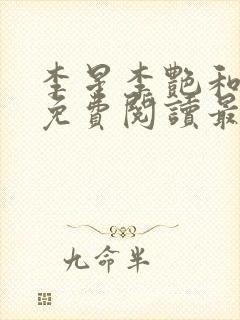 李星李艷和
免費閱讀最
九命半